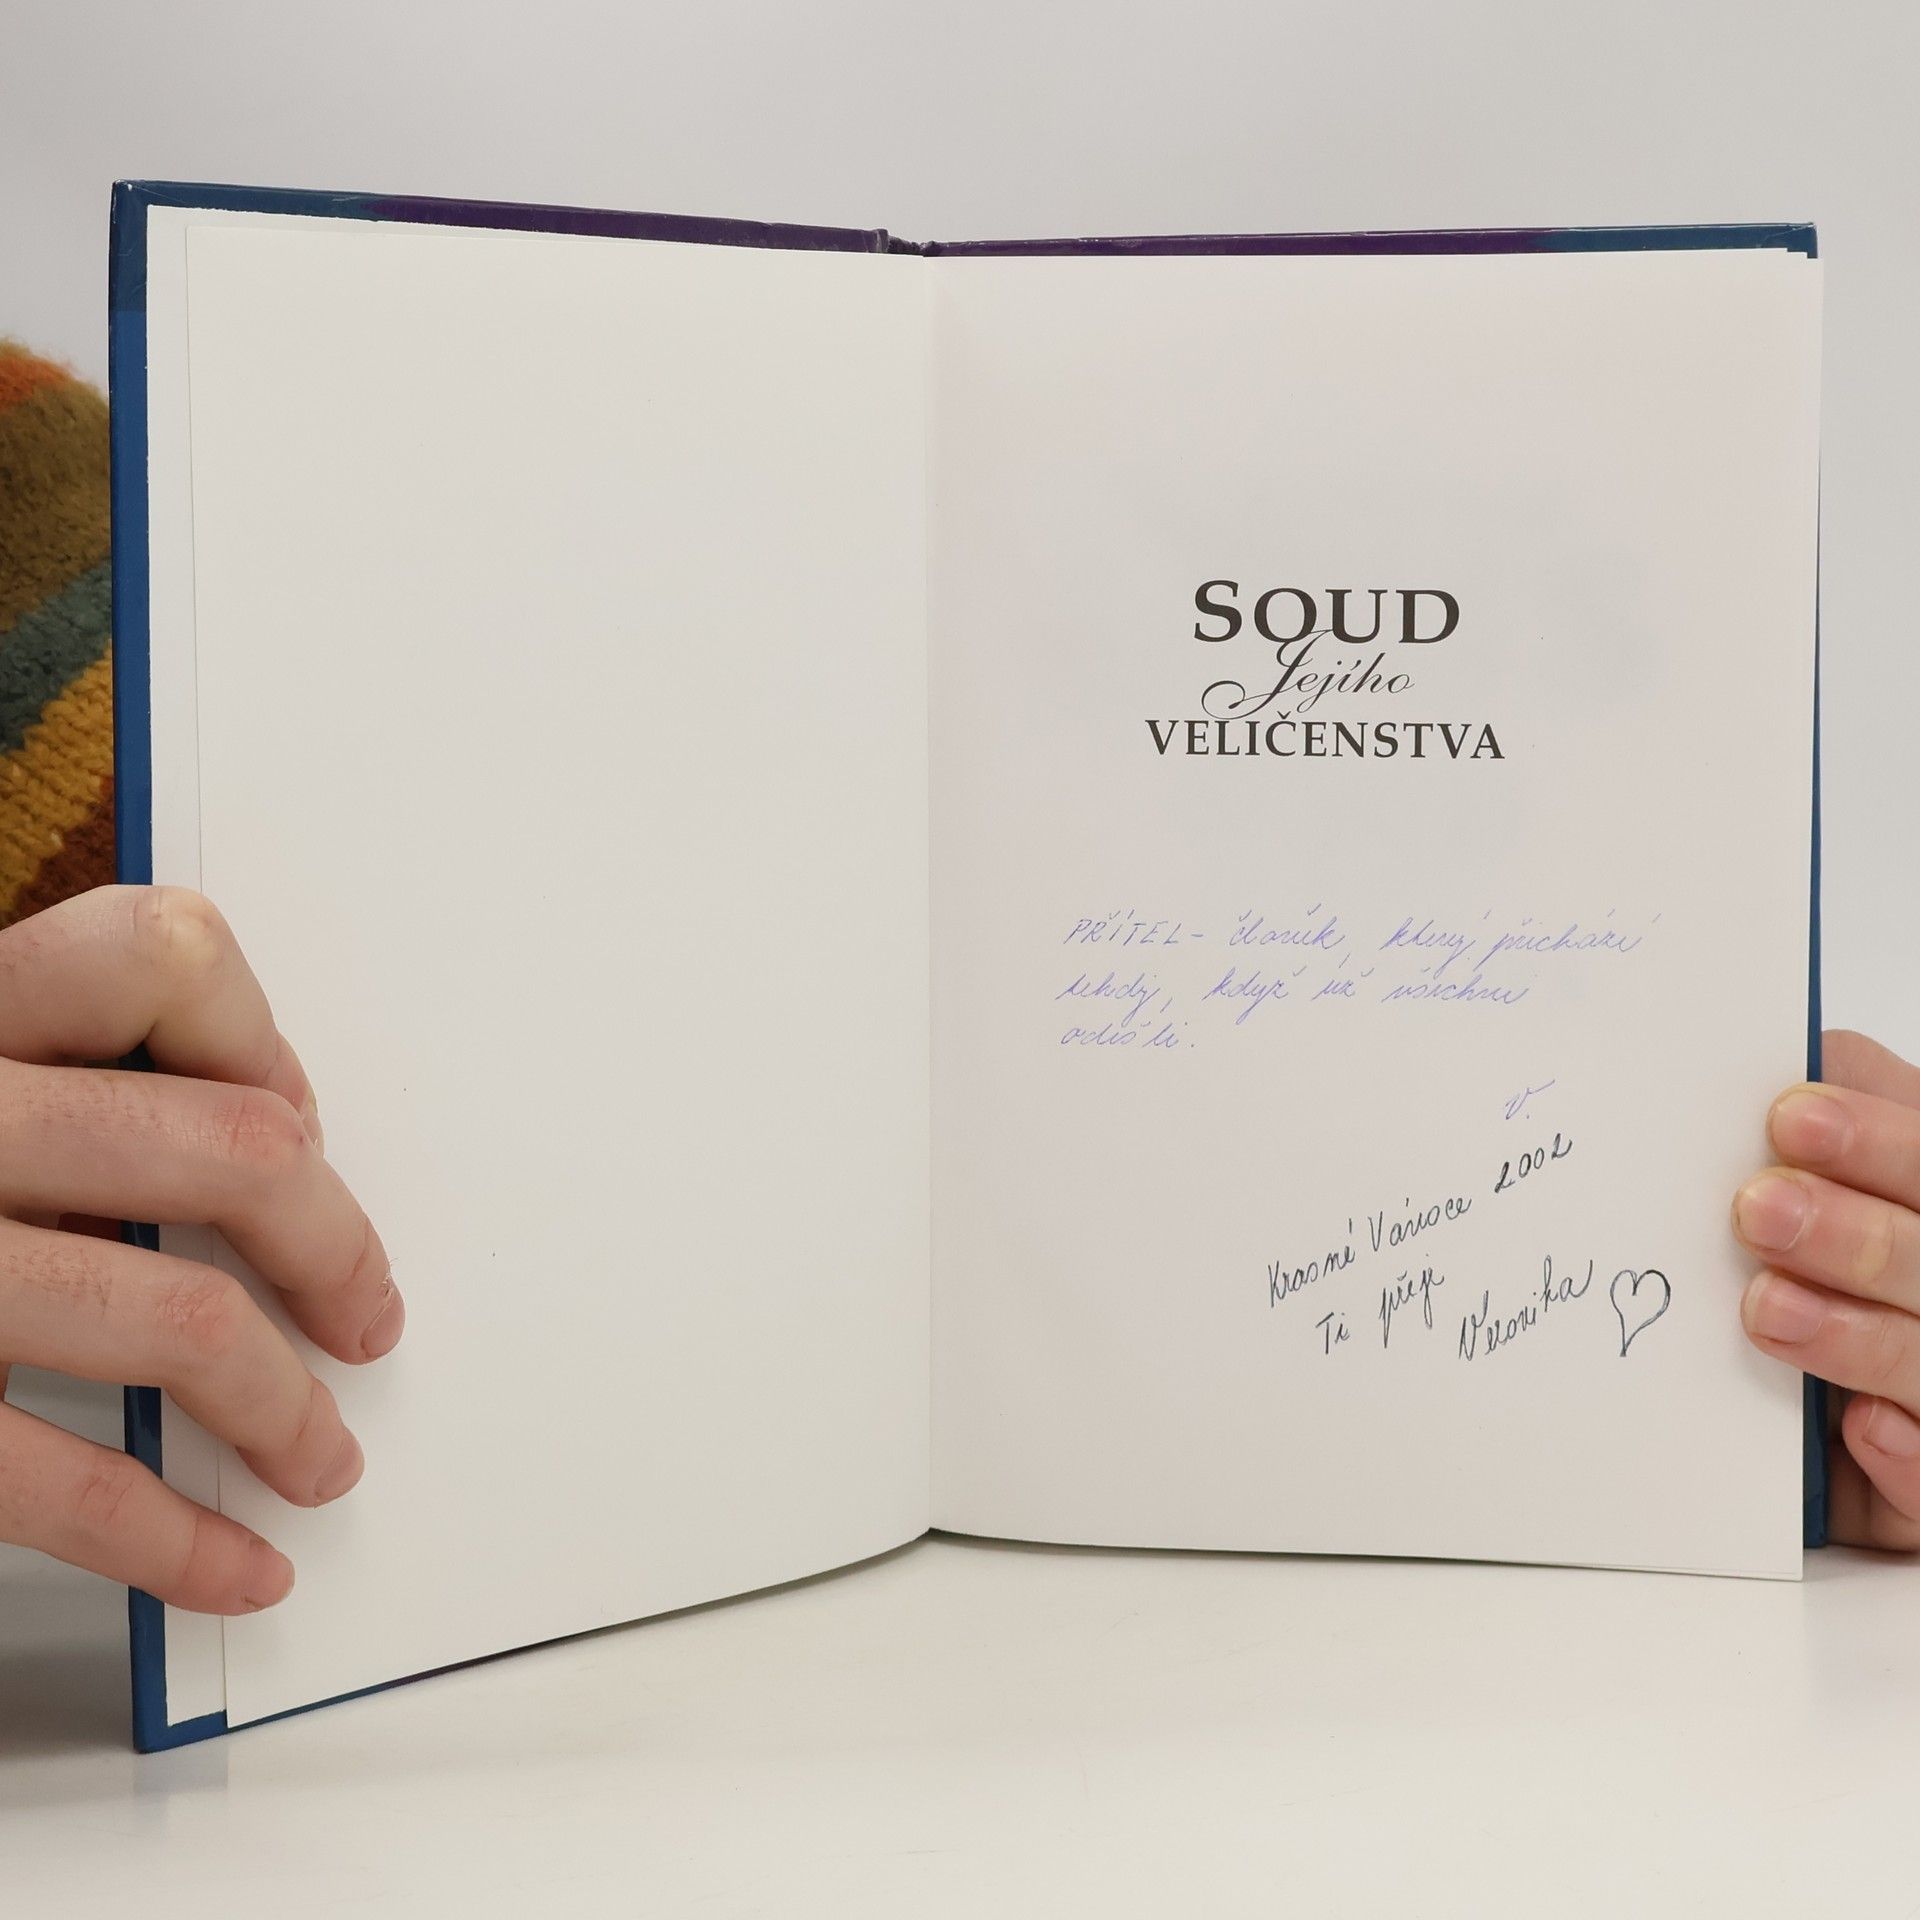 SOUD
Jejího
VELIČENSTVA
PŘÍTEL - člověk, který přichází
tehdy, když už všichni
odešli.
V.
Krásné Vánoce 2002
Ti přeje
Veronika